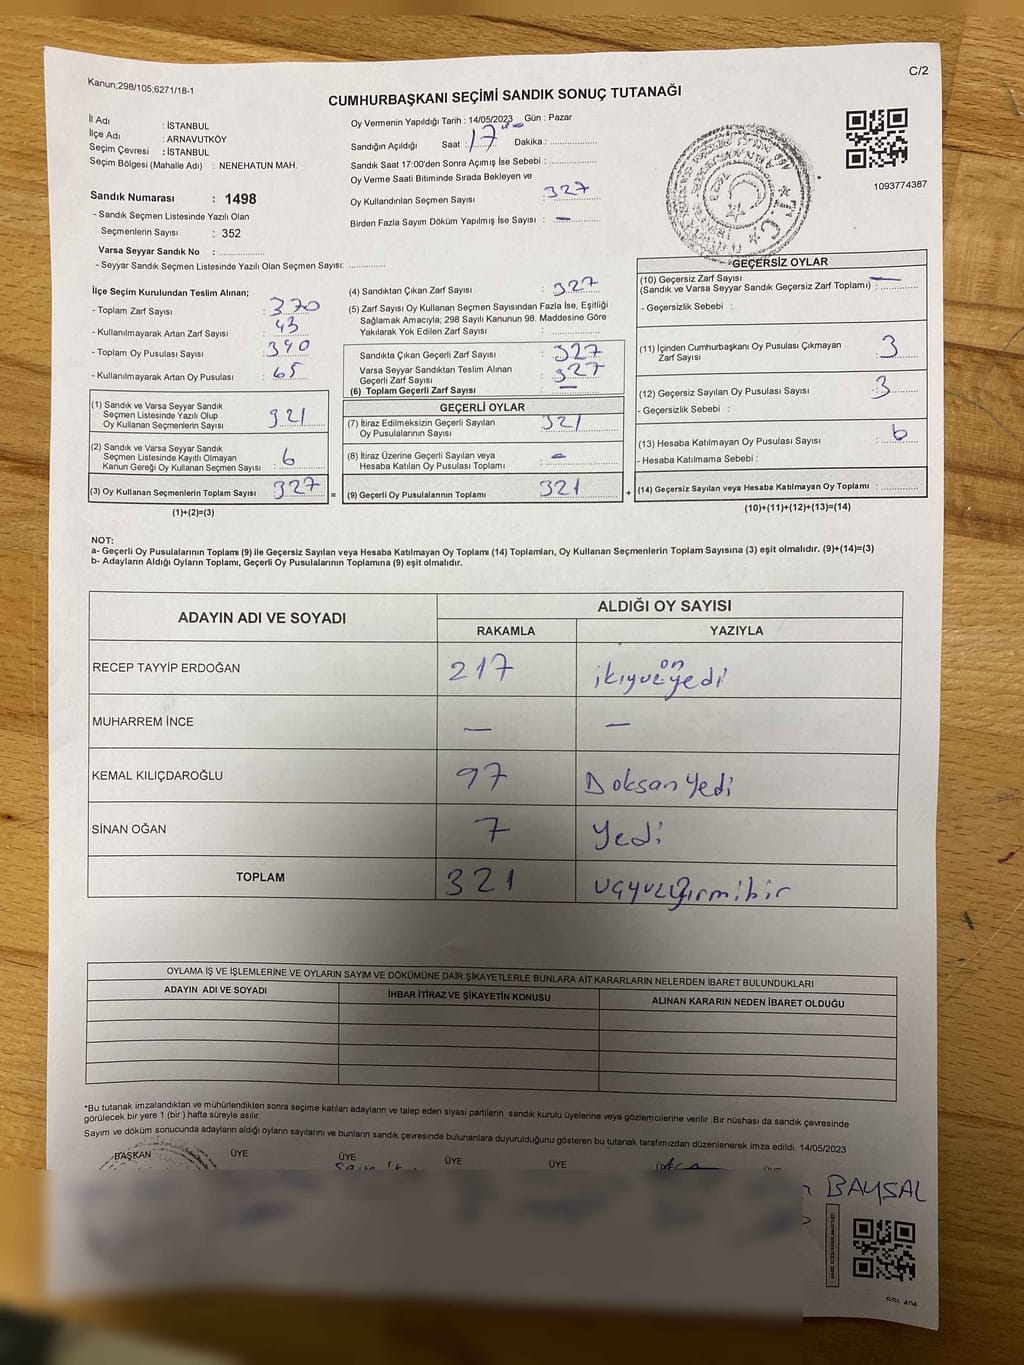 Kanun;298/105;6271/18-1
C/2
CUMHURBAŞKANI SEÇİMİ SANDIK SONUÇ TUTANAĞI
İl Adı : İSTANBUL
İlçe Adı : ARNAVUTKÖY
Seçim Çevresi : İSTANBUL
Seçim Bölgesi (Mahalle Adı) : NENEHATUN MAH.
Sandık Numarası : 1498
- Sandık Seçmen Listesinde Yazılı Olan
Seçmenlerin Sayısı : 352
Varsa Seyyar Sandık No :
- Seyyar Sandık Seçmen Listesinde Yazılı Olan Seçmen Sayısı:
Oy Vermenin Yapıldığı Tarih : 14/05/2023 Gün : Pazar
Sandığın Açıldığı Saat : 17 Dakika :
Sandık Saat 17:00'den Sonra Açımış İse Sebebi :
Oy Verme Saati Bitiminde Sırada Bekleyen ve
Oy Kullandırılan Seçmen Sayısı : 327
Birden Fazla Sayım Döküm Yapılmış İse Sayısı : —
1093774387
İlçe Seçim Kurulundan Teslim Alınan;
- Toplam Zarf Sayısı : 370
- Kullanılmayarak Artan Zarf Sayısı : 43
- Toplam Oy Pusulası Sayısı : 390
- Kullanılmayarak Artan Oy Pusulası : 65
(1) Sandık ve Varsa Seyyar Sandık
Seçmen Listesinde Yazılı Olup
Oy Kullanan Seçmenlerin Sayısı : 321
(2) Sandık ve Varsa Seyyar Sandık
Seçmen Listesinde Kayıtlı Olmayan
Kanun Gereği Oy Kullanan Seçmen Sayısı : 6
(3) Oy Kullanan Seçmenlerin Toplam Sayısı : 327
(1)+(2)=(3)
=
(4) Sandıktan Çıkan Zarf Sayısı : 327
(5) Zarf Sayısı Oy Kullanan Seçmen Sayısından Fazla İse, Eşitliği
Sağlamak Amacıyla; 298 Sayılı Kanunun 98. Maddesine Göre
Yakılarak Yok Edilen Zarf Sayısı :
Sandıkta Çıkan Geçerli Zarf Sayısı : 327
Varsa Seyyar Sandıktan Teslim Alınan
Geçerli Zarf Sayısı : 327
(6) Toplam Geçerli Zarf Sayısı : —
GEÇERLİ OYLAR
(7) İtiraz Edilmeksizin Geçerli Sayılan
Oy Pusulalarının Sayısı : 321
(8) İtiraz Üzerine Geçerli Sayılan veya
Hesaba Katılan Oy Pusulası Toplamı : —
(9) Geçerli Oy Pusulalarının Toplamı : 321
+
GEÇERSİZ OYLAR
(10) Geçersiz Zarf Sayısı
(Sandık ve Varsa Seyyar Sandık Geçersiz Zarf Toplamı) : —
- Geçersizlik Sebebi :
(11) İçinden Cumhurbaşkanı Oy Pusulası Çıkmayan
Zarf Sayısı : 3
(12) Geçersiz Sayılan Oy Pusulası Sayısı : 3
- Geçersizlik Sebebi :
(13) Hesaba Katılmayan Oy Pusulası Sayısı : 6
- Hesaba Katılmama Sebebi :
(14) Geçersiz Sayılan veya Hesaba Katılmayan Oy Toplamı :
(10)+(11)+(12)+(13)=(14)
NOT:
a- Geçerli Oy Pusulalarının Toplamı (9) ile Geçersiz Sayılan veya Hesaba Katılmayan Oy Toplamı (14) Toplamları, Oy Kullanan Seçmenlerin Toplam Sayısına (3) eşit olmalıdır. (9)+(14)=(3)
b- Adayların Aldığı Oyların Toplamı, Geçerli Oy Pusulalarının Toplamına (9) eşit olmalıdır.
ADAYIN ADI VE SOYADI ALDIĞI OY SAYISI
RAKAMLA YAZIYLA
RECEP TAYYİP ERDOĞAN 217 ikiyüz on yedi
MUHARREM İNCE — —
KEMAL KILIÇDAROĞLU 97 Doksan Yedi
SİNAN OĞAN 7 Yedi
TOPLAM 321 üçyüzyirmibir
OYLAMA İŞ VE İŞLEMLERİNE VE OYLARIN SAYIM VE DÖKÜMÜNE DAİR ŞİKAYETLERLE BUNLARA AİT KARARLARIN NELERDEN İBARET BULUNDUKLARI
ADAYIN ADI VE SOYADI İHBAR İTİRAZ VE ŞİKAYETİN KONUSU ALINAN KARARIN NEDEN İBARET OLDUĞU
*Bu tutanak imzalandıktan ve mühürlendikten sonra seçime katılan adayların ve talep eden siyasi partilerin sandık kurulu üyelerine veya gözlemcilerine verilir .Bir nüshası da sandık çevresinde
görülecek bir yere 1 (bir ) hafta süreyle asılır.
Sayım ve döküm sonucunda adayların aldığı oyların sayılarını ve bunların sandık çevresinde bulunanlara duyurulduğunu gösteren bu tutanak tarafımızdan düzenlenerek imza edildi. 14/05/2023
BAŞKAN ÜYE ÜYE ÜYE ÜYE
BAYSAL